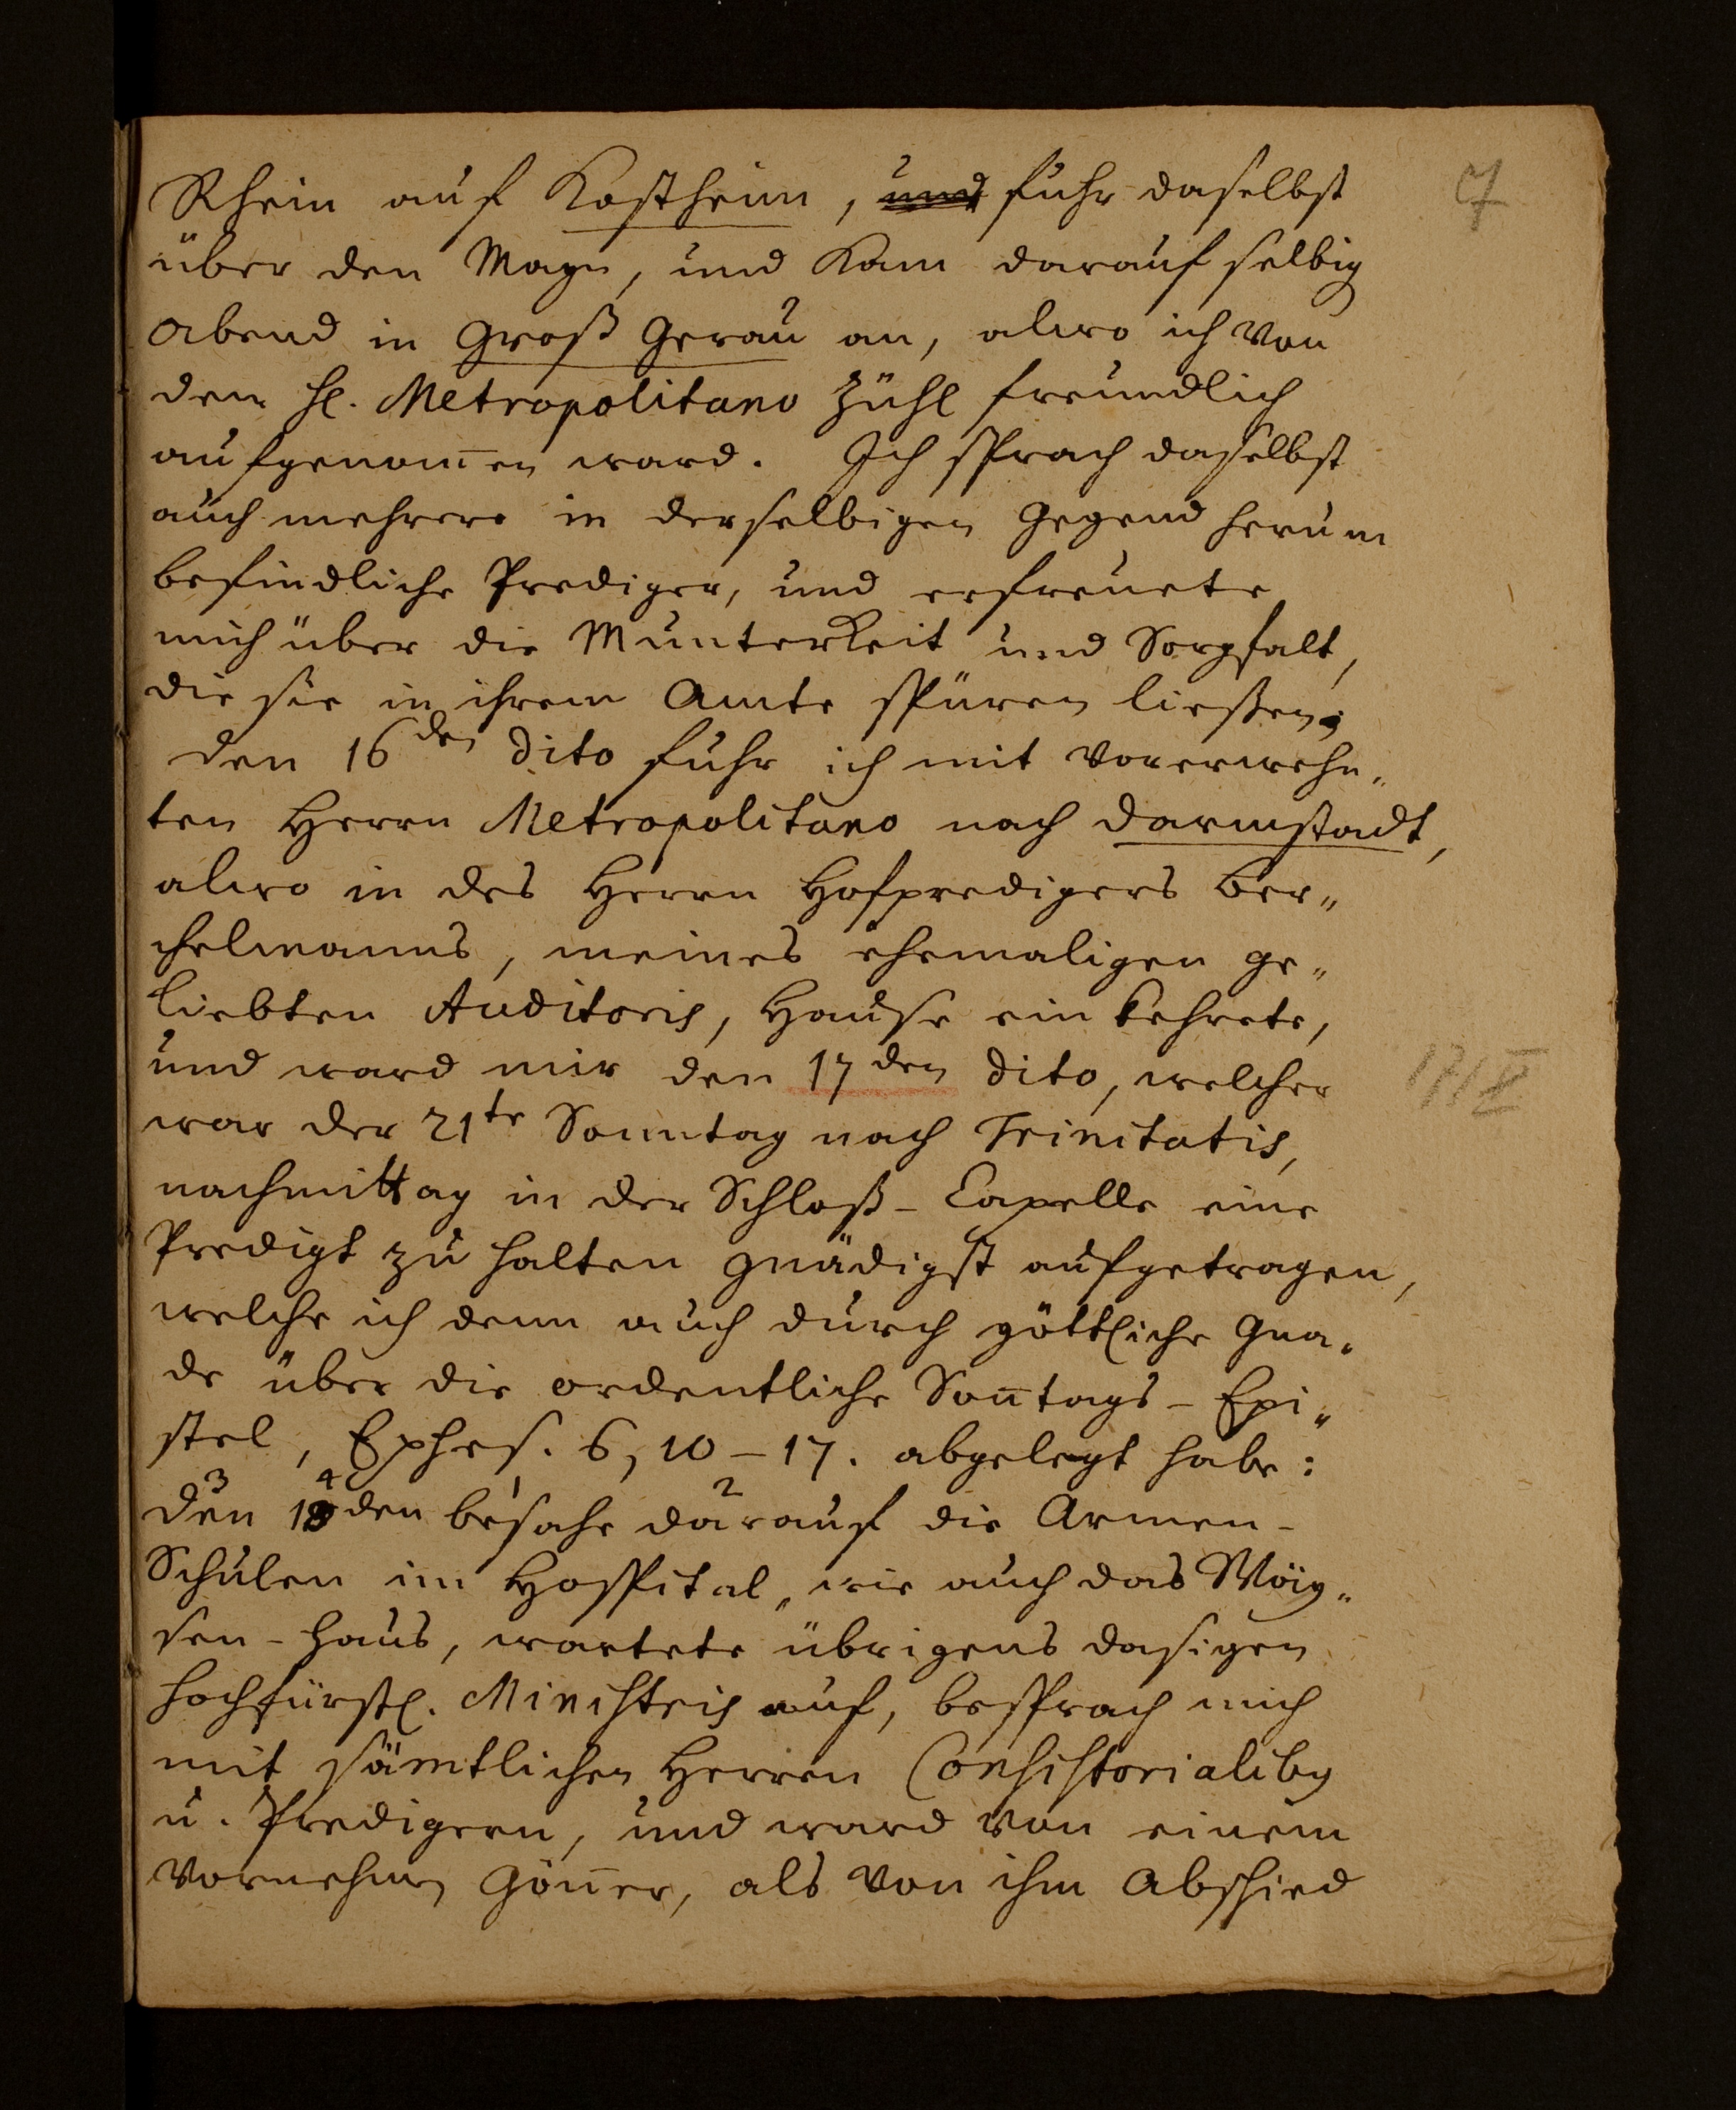 7
Rhein auf Kostheim, und fuhr daselbst
über den Mayn, und kam darauf selbig
Abend in Groß Gerau an, alwo ich von
dem H. Metropolitano Zühl freundlich
aufgenom̅en ward. Ich sprach daselbst
auch mehrere in derselbigen Gegend herum
befindliche Prediger, und erfreuete
mich über die Munterkeit und Sorgfalt,
die sie in ihrem Amte spüren ließen;
den 16den dito fuhr ich mit vorerwehn„
ten Herrn Metropolitano nach Darmstadt,
alwo in des Herrn Hofpredigers Ber„
chelmanns, meines ehemaligen ge„
liebten Auditoris, Hause ein kehrete,
und ward mir den 17den dito, welcher
17/X
war der 21te Sonntag nach Trinitatis,
nachmittag in der Schloß-Capelle eine
Predigt zu halten gnädigst aufgetragen,
welche ich denn auch durch göttliche Gna„
de über die ordentliche Son̅tags-Epi„
stel, Ephes. 6, 10-17. abgelegt habe:
3 4 1 2
den 18den besahe darauf die Armen-
Schulen im Hospital, wie auch das Wäy„
sen-Haus, wartete übrigens dasigen
Hochfürstl. Ministris auf, besprach mich
mit sämtlichen Herren Consistorialibg
u. Predigern, und ward von einem
vornehmen Gön̅er, als von ihm Abschied